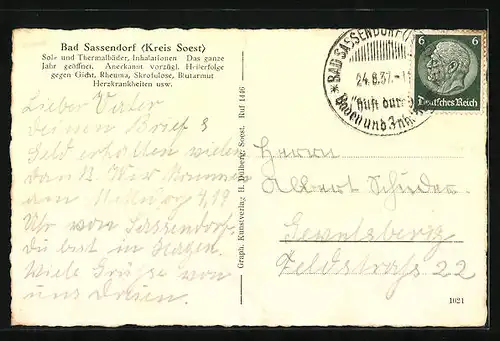 Bad Sassendorf (Kreis Soest)
Sole und Thermalbäder, Inhalationen Das ganze
Jahr geöffnet. Anerkannt vorzügl. Heilerfolge
gegen Gicht, Rheuma, Skrofulose, Blutarmut
Herzkrankheiten usw.
Lieber Vater
deinen Brief &
Geld erhalten vielen
dank. Wir kommen
am 4,19
Uhr von Sassendorf.
du bist in Hagen.
Viele Grüsse von
uns Dreien.
Graph. Kunstverlag H. Dülberg, Soest. Ruf 1446
BAD SASSENDORF
24.8.37
Baden und
6 6
Deutsches Reich
Herrn
Albert
Gevelsberg
Feldstraße 22
1021